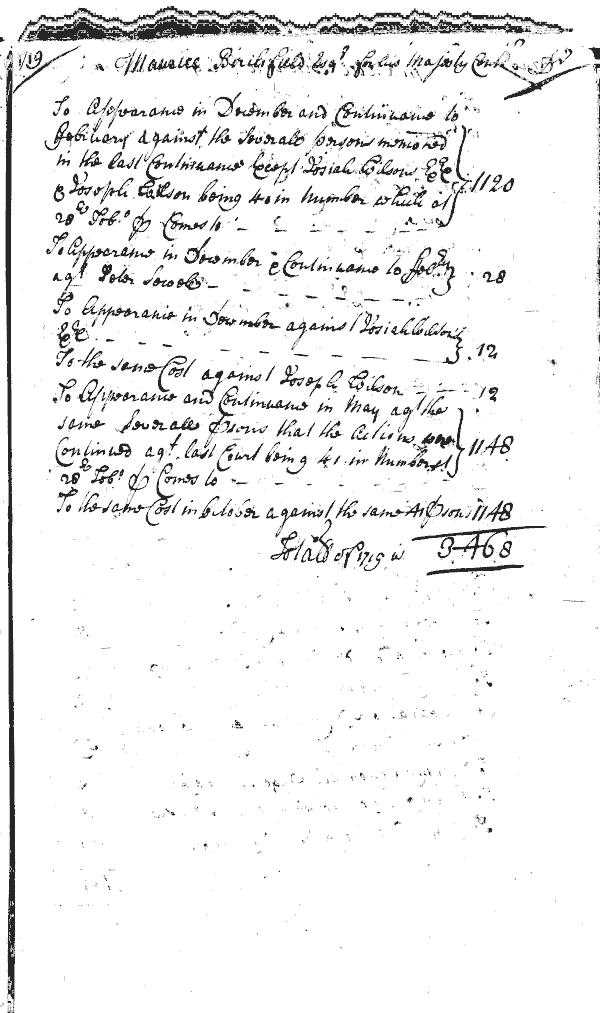 1719 Maurice Birchfield Esqr. for his Majesty Cont. Dr
To Appearance in December and Continuance to
February against the severall persons mentioned
in the last Continuance Except Josiah Wilsons Exx
& Joseph Wilson being 40 in Number which at
28 lb Tobo. P Comes to 1120
To Appearance in December & Continuance to
agt. Peter 28
To Appearance in December against Josiah Wilsons
Exx 12
To the same Cost against Joseph Wilson 12
To Appearance and Continuance in May agt. the
same Severall Psons that the Actions were
Continued agt. last Court being 41 in Number at
28 lb Tobo. P Comes to 1148
To the same Cost in October against the same 41 Psons 1148
Totall of 1719 is 3468